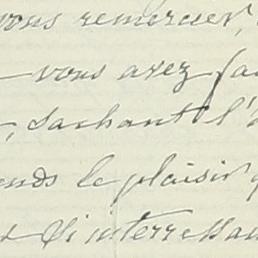 vous remercier,
vous avez fai
, sachant l'
ends le plaisir q
t si interressan